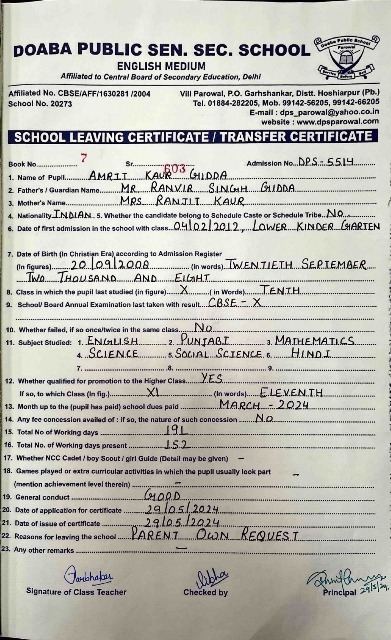 DOABA PUBLIC SEN. SEC. SCHOOL
ENGLISH MEDIUM
Affiliated to Central Board of Secondary Education, Delhi
Affiliated No. CBSE/AFF/1630281 /2004 Vill Parowal, P.O. Garhshankar, Distt. Hoshiarpur (Pb.)
School No. 20273 Tel. 01884-282205, Mob. 99142-56205, 99142-66205
E-mail : dps_parowal@yahoo.co.in
website : www.dpsparowal.com
SCHOOL LEAVING CERTIFICATE / TRANSFER CERTIFICATE
Book No. 7 Sr. 603 Admission No. DPS-5514
1. Name of Pupil AMRIT KAUR GIDDA
2. Father's / Guardian Name MR. RANVIR SINGH GIDDA
3. Mother's Name MRS RANJIT KAUR
4. Nationality INDIAN. 5. Whether the candidate belong to Schedule Caste or Schedule Tribe. No
6. Date of first admission in the school with class 04/02/2012, LOWER KINDER GARTEN
7. Date of Birth (In Christian Era) according to Admission Register
(In figures) 20/09/2008 (in words) TWENTIETH SEPTEMBER
TWO THOUSAND AND EIGHT
8. Class in which the pupil last studied (in figure) X (in Words) TENTH
9. School/ Board Annual Examination last taken with result CBSE - X
10. Whether failed, if so once/twice in the same class. NO
11. Subject Studied : 1. ENGLISH 2. PUNJABI 3. MATHEMATICS
4. SCIENCE 5. SOCIAL SCIENCE 6. HINDI
7. 8. 9.
12. Whether qualified for promotion to the Higher Class. YES
If so, to which Class (In fig.) XI (In words) ELEVENTH
13. Month up to the (pupil has paid) school dues paid MARCH - 2024
14. Any fee concession availed of : if so, the nature of such concession NO
15. Total No of Working days 191
16. Total No. of Working days present 152
17. Whether NCC Cadet / boy Scout / girl Guide (Detail may be given) -
18. Games played or extra curricular activities in which the pupil usually look part -
(mention achievement level therein) -
19. General conduct GOOD
20. Date of application for certificate 29/05/2024
21. Date of issue of certificate 29/05/2024
22. Reasons for leaving the school PARENT OWN REQUEST
23. Any other remarks -
Signature of Class Teacher Checked by Principal 29/5/24